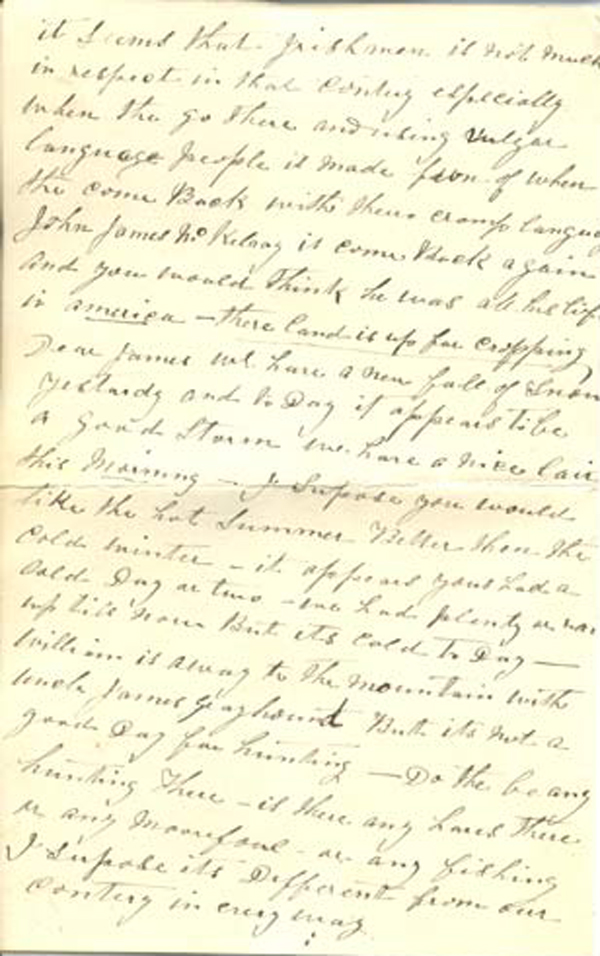 it seems that Irishmen is not much
in respect in that Contery especially
when the go there and using vulgar
language people is made fun of when
the come Back with there cromp langu
John James Mc Kelvay is come Back again
and you would think he was all his lif
in america - there land is up for cropping
Dear James we have a new fall of Snow
yesterdy and to Day it appears to be
a good Storm we have a nice lair
this Morning - I Supose you would
like the hot Summer Better then the
Cold winter - it appears yous had a
cold Day or two - we had plenty
up till now But its cold to Day -
William is away to the mountain with
uncle James Grayhound But its not a
good Day for hunting - Do the be any
hunting There - is there any hares There
or any Moorefowl - or any fishing
I supose its Different from our
contery in every way